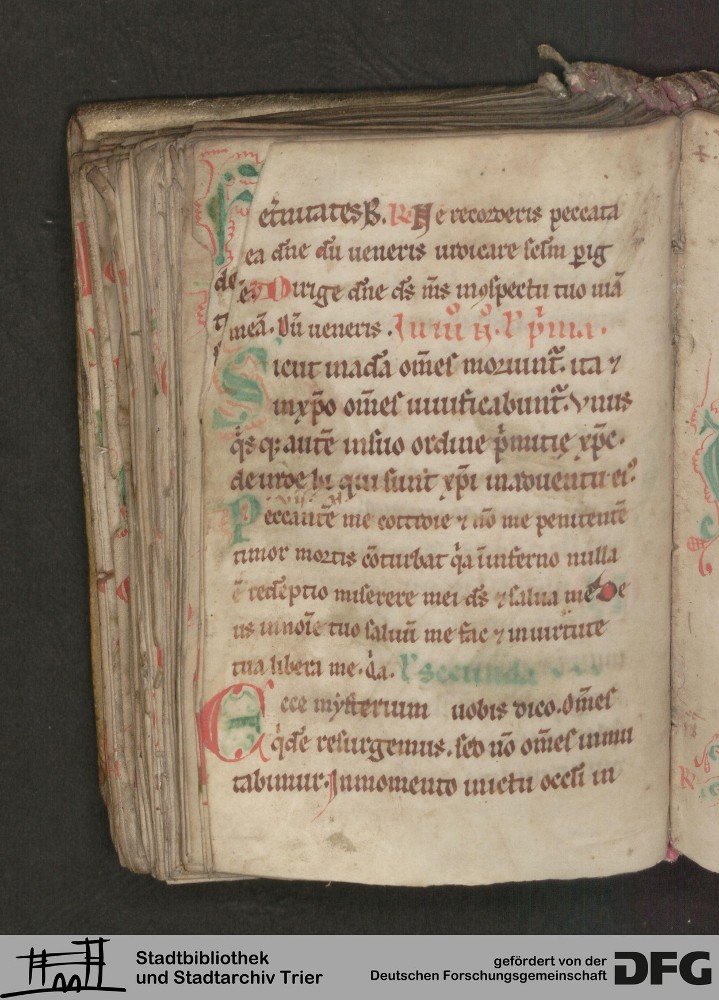 etr̄nitates. R̃ Ne recorderis peccata
ea dn̄e dū ueneris iudicare seclm̄ p̲ ig
de
ē. Dirige dn̄e ds̄ m̄s in ꝯspectu tuo uiā
meā. Dū ueneris. p̄ma.
Sicut in adā om̄es moriunt̄. ita ⁊
in xp̄o om̄es uiuificabunt̄. Vnus
q̄sq; autē in suo ordine p̄mitie xp̄c.
deinde hi qui sunt xp̄i in aduentu eiꝰ
Peccantē me cottidie ⁊ nō me penitentē
timor mortis cōturbat q̄a ī inferno nulla
ē redēptio miserere mei ds̄ ⁊ salua me De
us in noīe tuo saluū me fac ⁊ in uirtute
tua libera me. q̄a. secunda
Ecce mysterium uobis dico. Om̄es
q̄dē resurgemus. sed nō om̄es inmu
tabimur. In momento in ictu occli in
Stadtbibliothek
und Stadtarchiv Trier
gefördert von der
Deutschen Forschungsgemeinschaft
DFG